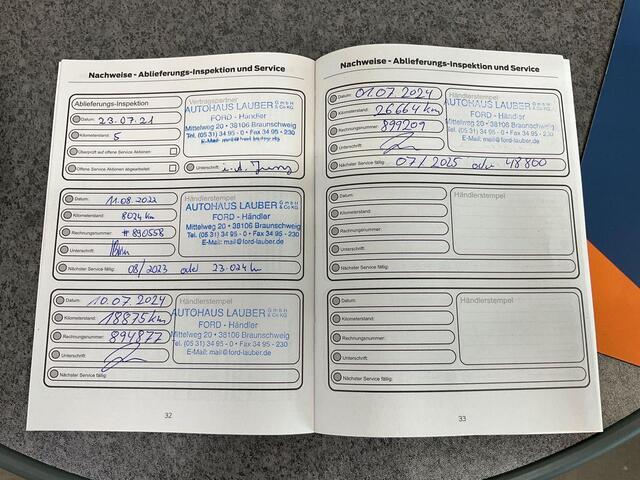 Nachweise - Ablieferungs-Inspektion und Service
Ablieferungs-Inspektion
Datum: 23.07.21
Kilometerstand: 5
Überprüft auf offene Service Aktionen:
Offene Service Aktionen abgearbeitet:
Vertragspartner
AUTOHAUS LAUBER GmbH & Co KG
FORD - Händler
Mittelweg 20 • 38106 Braunschweig
Tel. (05 31) 34 95 - 0 • Fax 34 95 - 230
E-Mail: mail@ford-lauber.de
Unterschrift:
Datum: 11.08.2022
Kilometerstand: 8024 km
Rechnungsnummer: # 890558
Unterschrift:
Nächster Service fällig: 08/2023 oder 23.024 km
Händlerstempel
AUTOHAUS LAUBER GmbH & Co KG
FORD - Händler
Mittelweg 20 • 38106 Braunschweig
Tel. (05 31) 34 95 - 0 • Fax 34 95 - 230
E-Mail: mail@ford-lauber.de
Datum: 10.07.2024
Kilometerstand: 18875 km
Rechnungsnummer: 894877
Unterschrift:
Nächster Service fällig:
Händlerstempel
AUTOHAUS LAUBER GmbH & Co KG
FORD - Händler
Mittelweg 20 • 38106 Braunschweig
Tel. (05 31) 34 95 - 0 • Fax 34 95 - 230
E-Mail: mail@ford-lauber.de
32
Nachweise - Ablieferungs-Inspektion und Service
Datum: 01.07.2024
Kilometerstand: 26664 km
Rechnungsnummer: 899209
Unterschrift:
Nächster Service fällig: 07/2025 oder 48800
Händlerstempel
AUTOHAUS LAUBER GmbH & Co KG
FORD - Händler
Mittelweg 20 • 38106 Braunschweig
Tel. (05 31) 34 95 - 0 • Fax 34 95 - 230
E-Mail: mail@ford-lauber.de
Datum:
Kilometerstand:
Rechnungsnummer:
Unterschrift:
Nächster Service fällig:
Händlerstempel
Datum:
Kilometerstand:
Rechnungsnummer:
Unterschrift:
Nächster Service fällig:
Händlerstempel
33